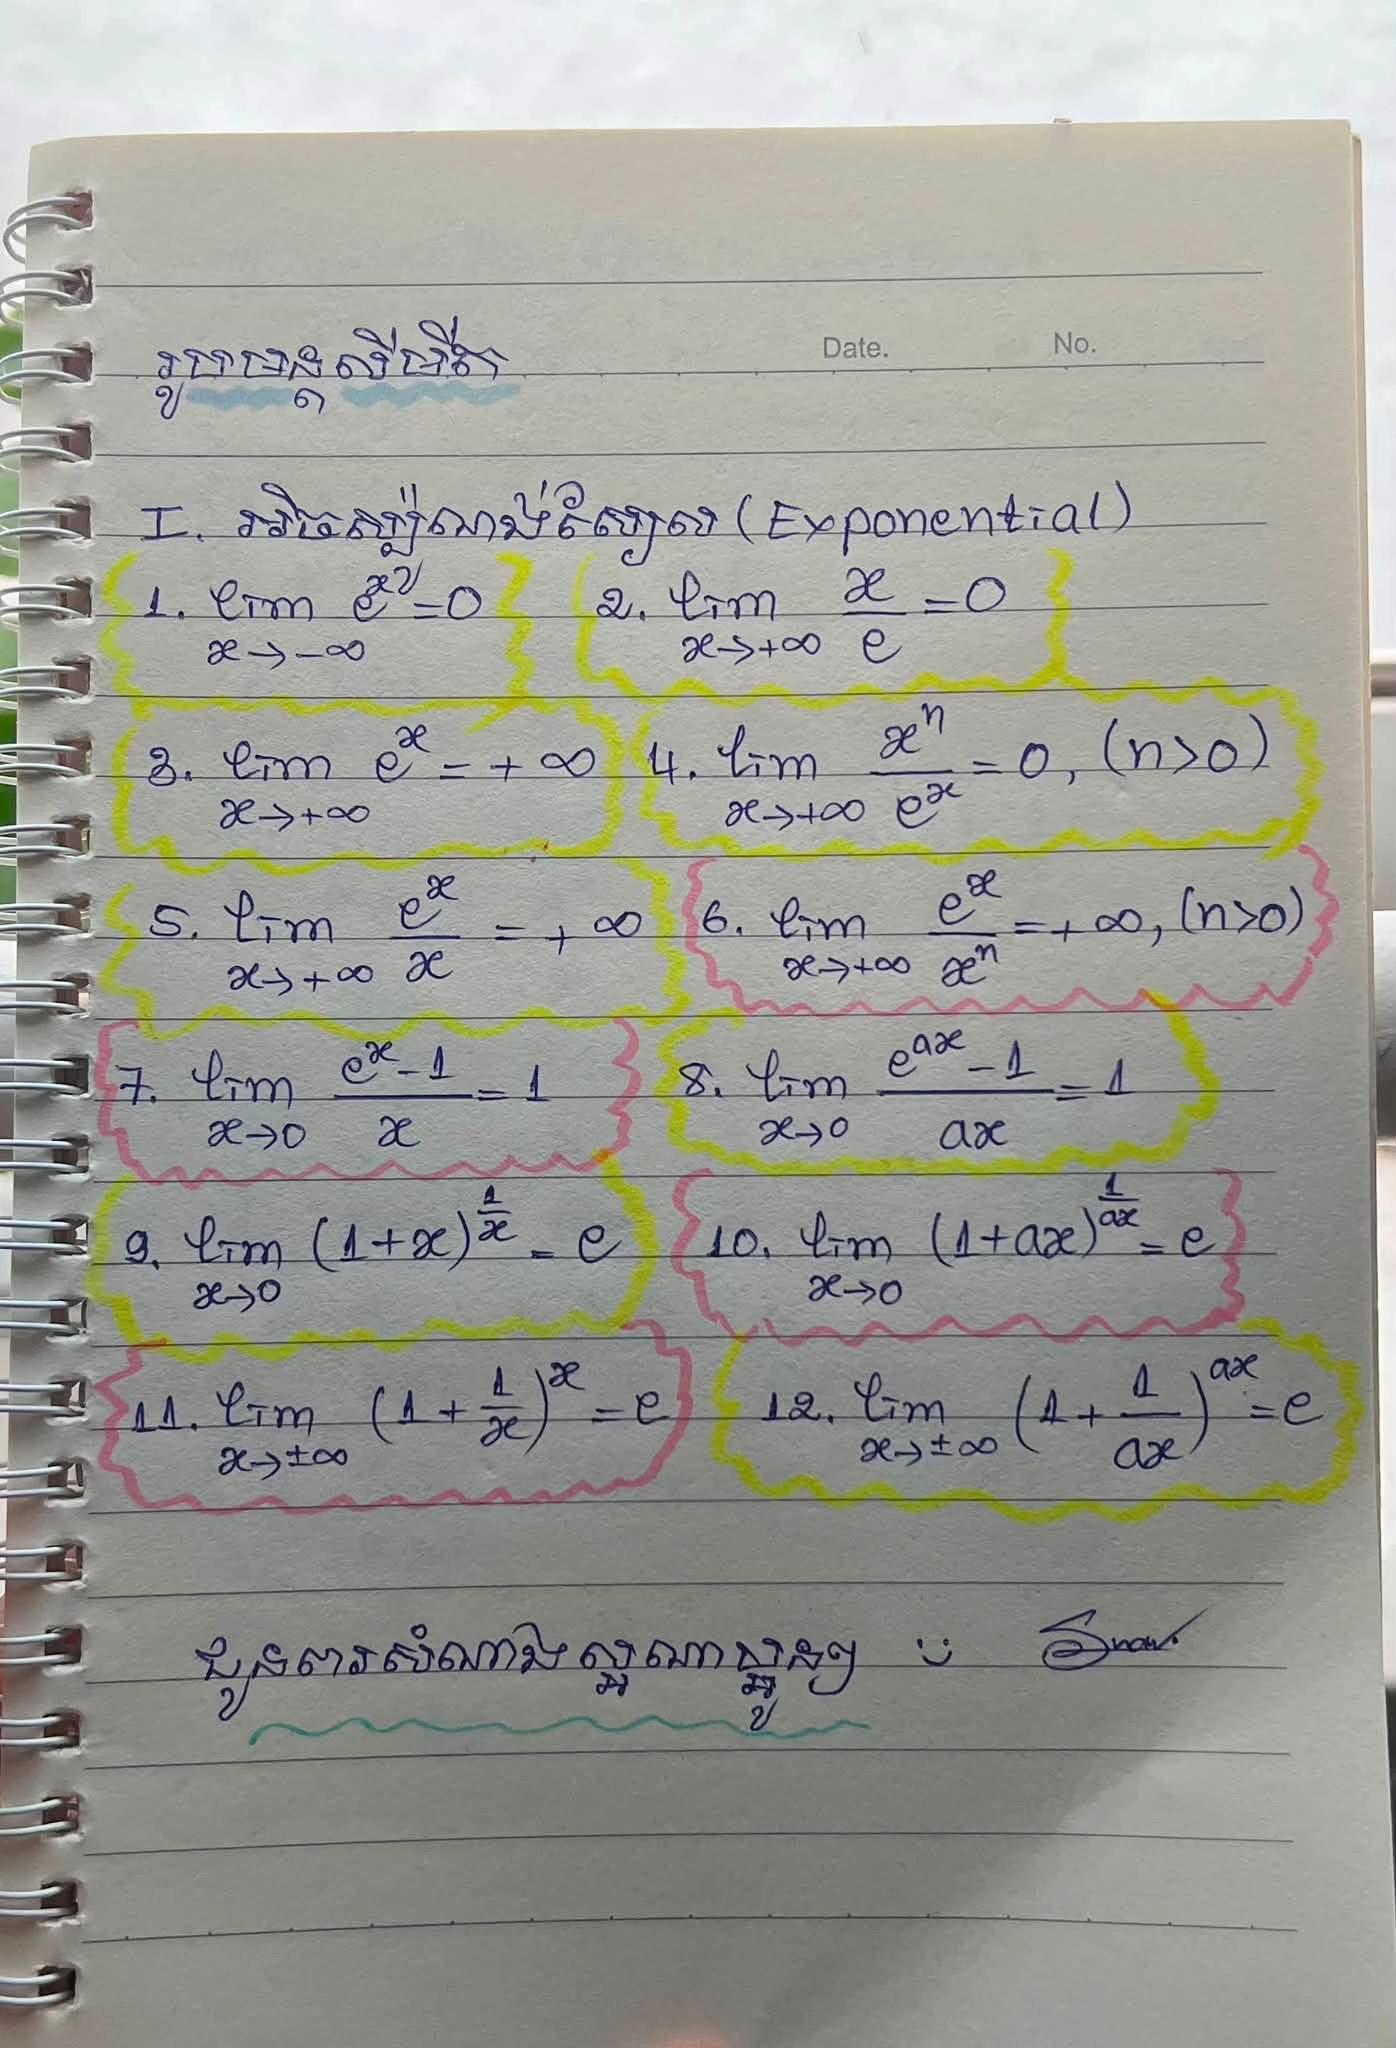 Date. No.
រូបមន្តលីមីត
I. អិចស្ប៉ូណង់ស្យែល (Exponential)
1. lim x→-∞ e^x = 0 2. lim x→+∞ x/e = 0
3. lim x→+∞ e^x = +∞ 4. lim x→+∞ x^n/e^x = 0, (n>0)
5. lim x→+∞ e^x/x = +∞ 6. lim x→+∞ e^x/x^n = +∞, (n>0)
7. lim x→0 (e^x - 1)/x = 1 8. lim x→0 (e^ax - 1)/ax = 1
9. lim x→0 (1+x)^(1/x) = e 10. lim x→0 (1+ax)^(1/ax) = e
11. lim x→±∞ (1 + 1/x)^x = e 12. lim x→±∞ (1 + 1/ax)^ax = e
ជូនពរសំណាងល្អណាប្អូនៗ